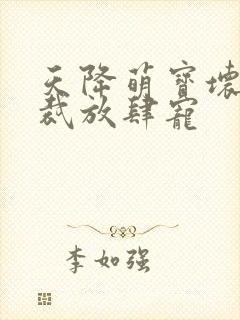 天降萌寶壞
裁放肆寵
李如强